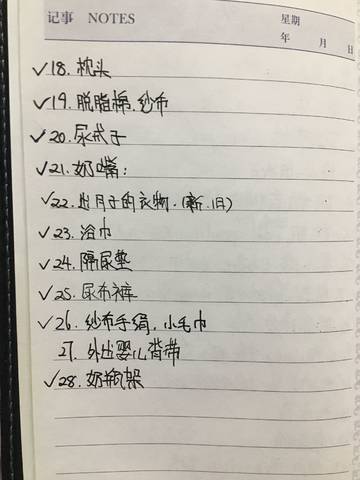 记事 NOTES
星期
年 月 日
✓18. 枕头
✓19. 脱脂棉.纱布
✓20. 尿戒子
✓21. 奶嘴:
✓22. 出月子的衣物.(新.旧)
✓23. 浴巾
✓24. 隔尿垫
✓25. 尿布裤
✓26. 纱布手绢.小毛巾
27. 外出婴儿背带
✓28. 奶瓶架